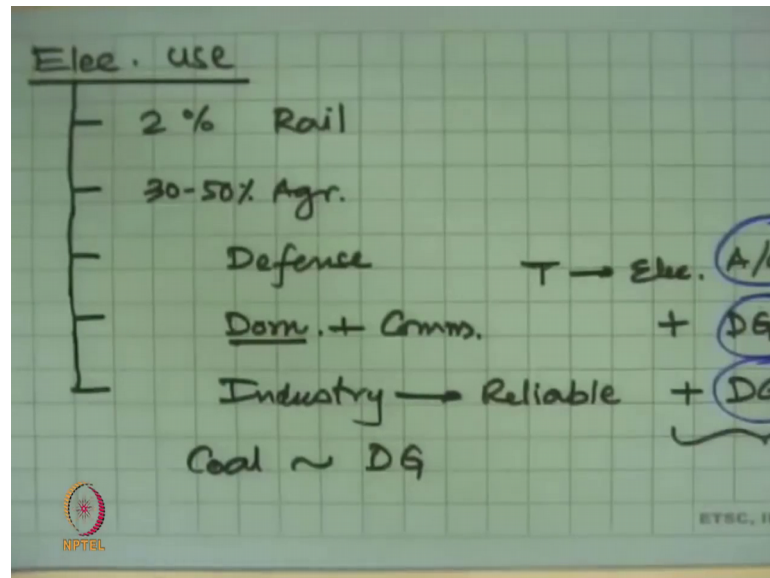 Elec. use
2% Rail
30-50% Agr.
Defence T → Elec. A/
Dom. + Comms. + DG
Industry → Reliable + DG
Coal ~ DG
NPTEL
ETSC, I